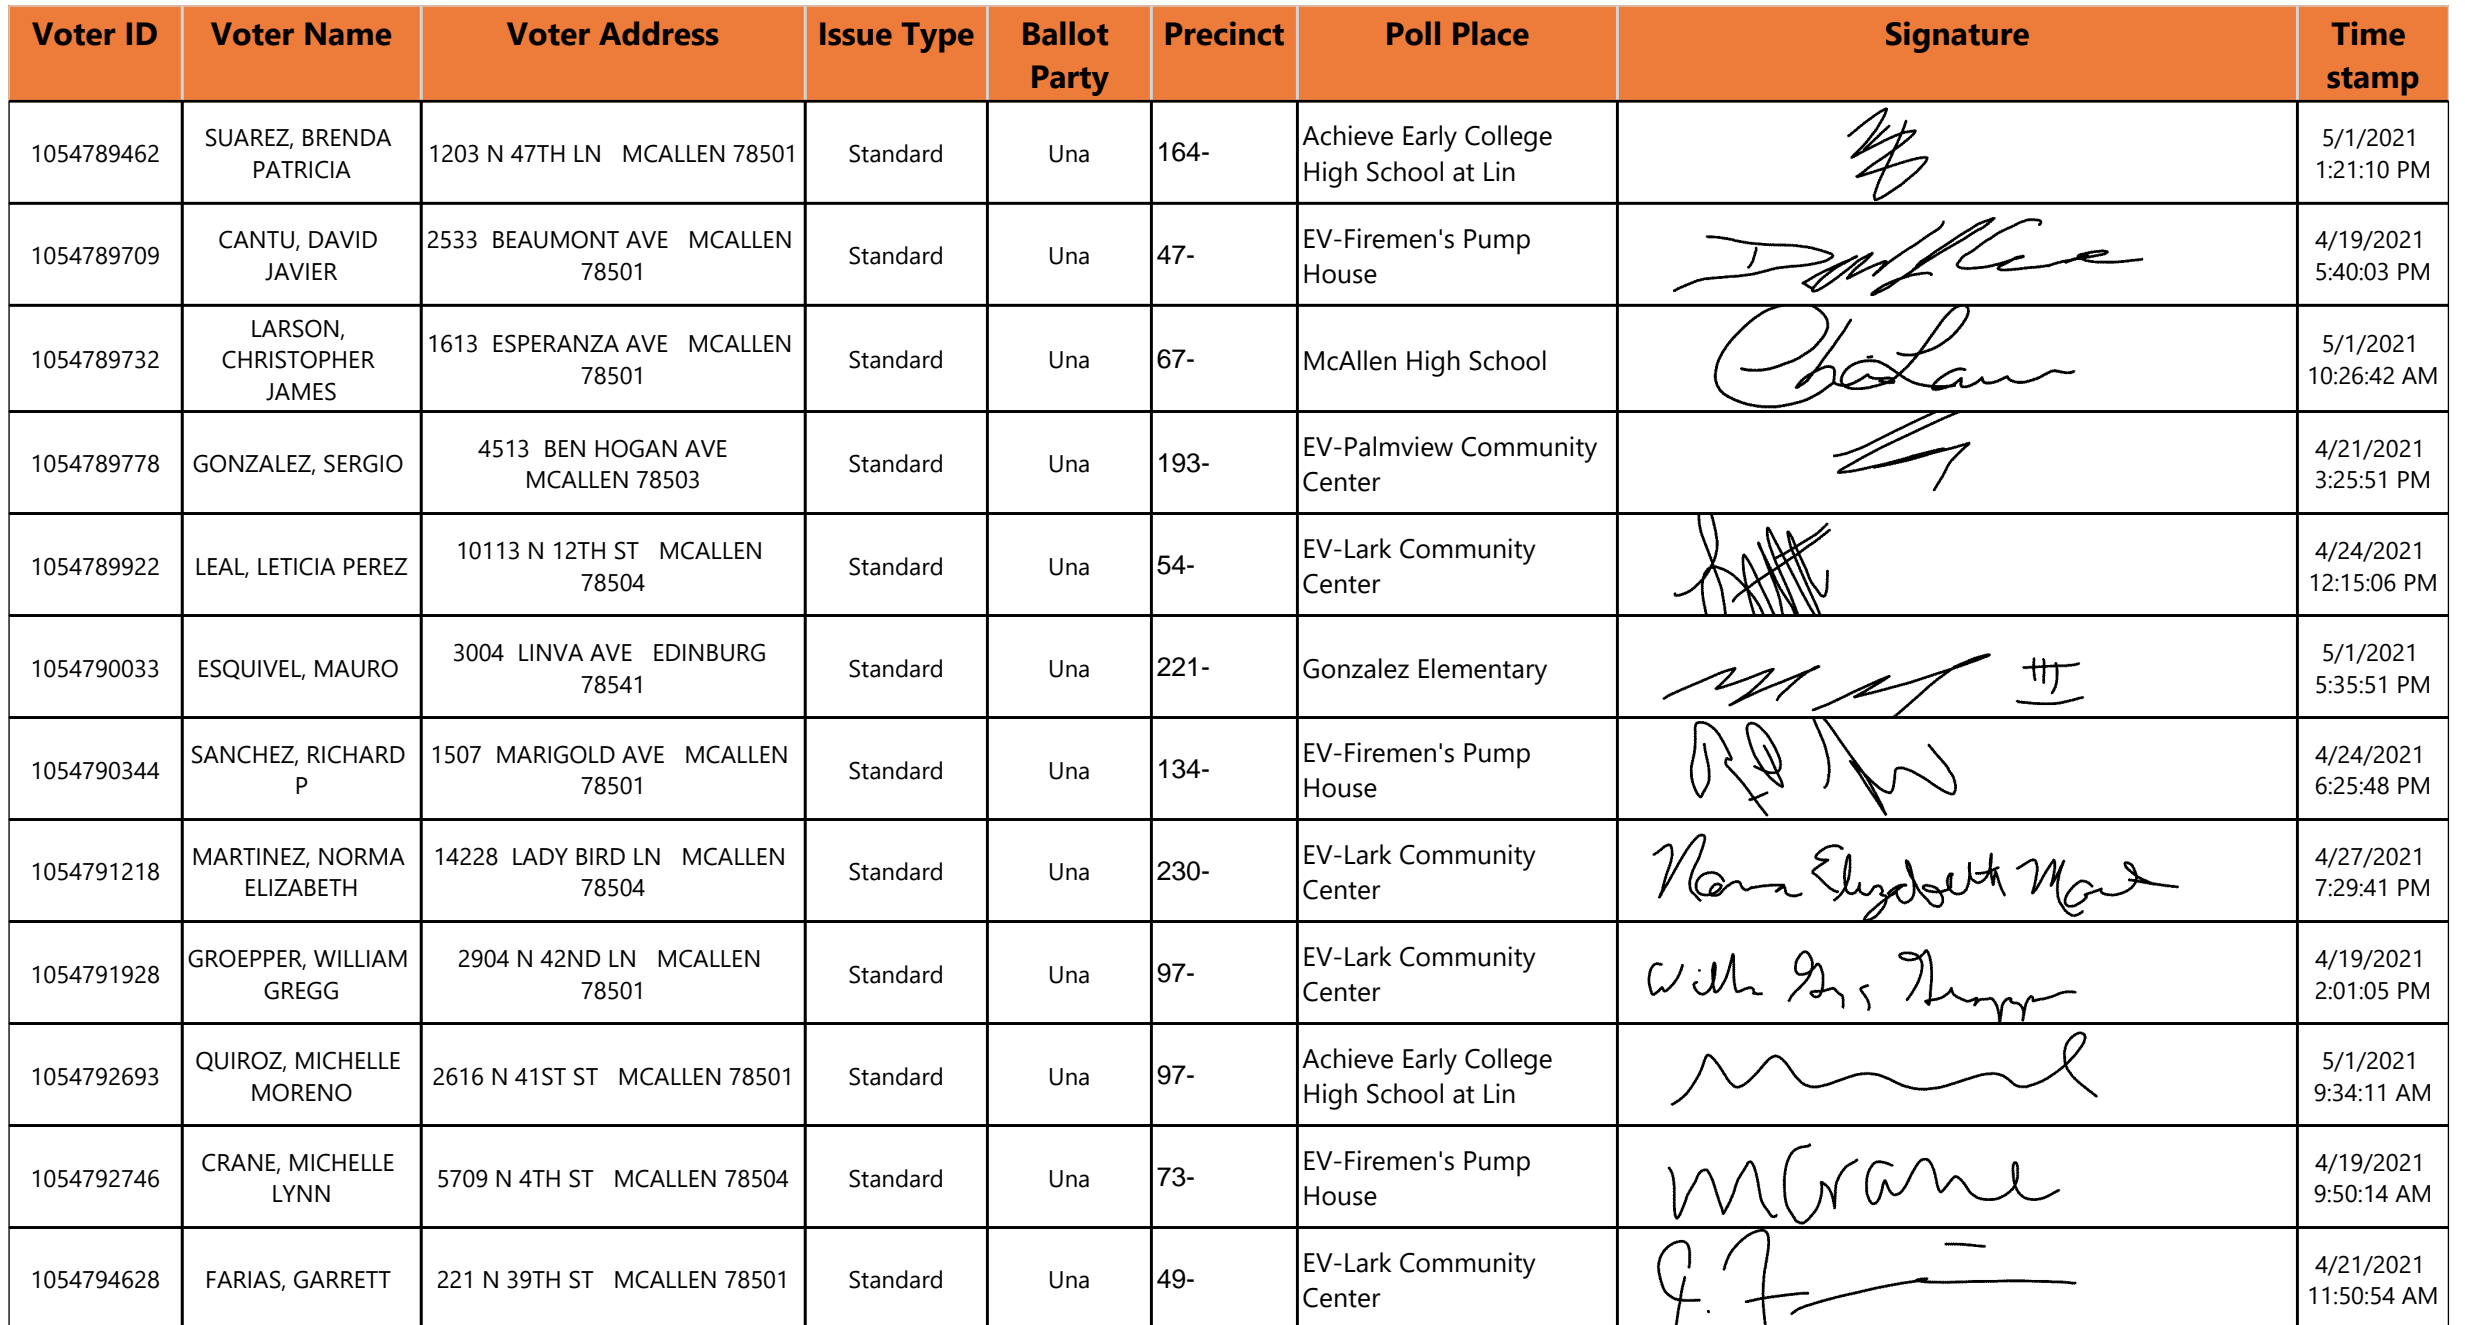 Voter ID Voter Name Voter Address Issue Type Ballot Party Precinct Poll Place Signature Time stamp
1054789462 SUAREZ, BRENDA PATRICIA 1203 N 47TH LN MCALLEN 78501 Standard Una 164- Achieve Early College High School at Lin 5/1/2021 1:21:10 PM
1054789709 CANTU, DAVID JAVIER 2533 BEAUMONT AVE MCALLEN 78501 Standard Una 47- EV-Firemen's Pump House 4/19/2021 5:40:03 PM
1054789732 LARSON, CHRISTOPHER JAMES 1613 ESPERANZA AVE MCALLEN 78501 Standard Una 67- McAllen High School 5/1/2021 10:26:42 AM
1054789778 GONZALEZ, SERGIO 4513 BEN HOGAN AVE MCALLEN 78503 Standard Una 193- EV-Palmview Community Center 4/21/2021 3:25:51 PM
1054789922 LEAL, LETICIA PEREZ 10113 N 12TH ST MCALLEN 78504 Standard Una 54- EV-Lark Community Center 4/24/2021 12:15:06 PM
1054790033 ESQUIVEL, MAURO 3004 LINVA AVE EDINBURG 78541 Standard Una 221- Gonzalez Elementary III 5/1/2021 5:35:51 PM
1054790344 SANCHEZ, RICHARD P 1507 MARIGOLD AVE MCALLEN 78501 Standard Una 134- EV-Firemen's Pump House 4/24/2021 6:25:48 PM
1054791218 MARTINEZ, NORMA ELIZABETH 14228 LADY BIRD LN MCALLEN 78504 Standard Una 230- EV-Lark Community Center Norma Elizabeth 4/27/2021 7:29:41 PM
1054791928 GROEPPER, WILLIAM GREGG 2904 N 42ND LN MCALLEN 78501 Standard Una 97- EV-Lark Community Center 4/19/2021 2:01:05 PM
1054792693 QUIROZ, MICHELLE MORENO 2616 N 41ST ST MCALLEN 78501 Standard Una 97- Achieve Early College High School at Lin 5/1/2021 9:34:11 AM
1054792746 CRANE, MICHELLE LYNN 5709 N 4TH ST MCALLEN 78504 Standard Una 73- EV-Firemen's Pump House M Crane 4/19/2021 9:50:14 AM
1054794628 FARIAS, GARRETT 221 N 39TH ST MCALLEN 78501 Standard Una 49- EV-Lark Community Center 4/21/2021 11:50:54 AM